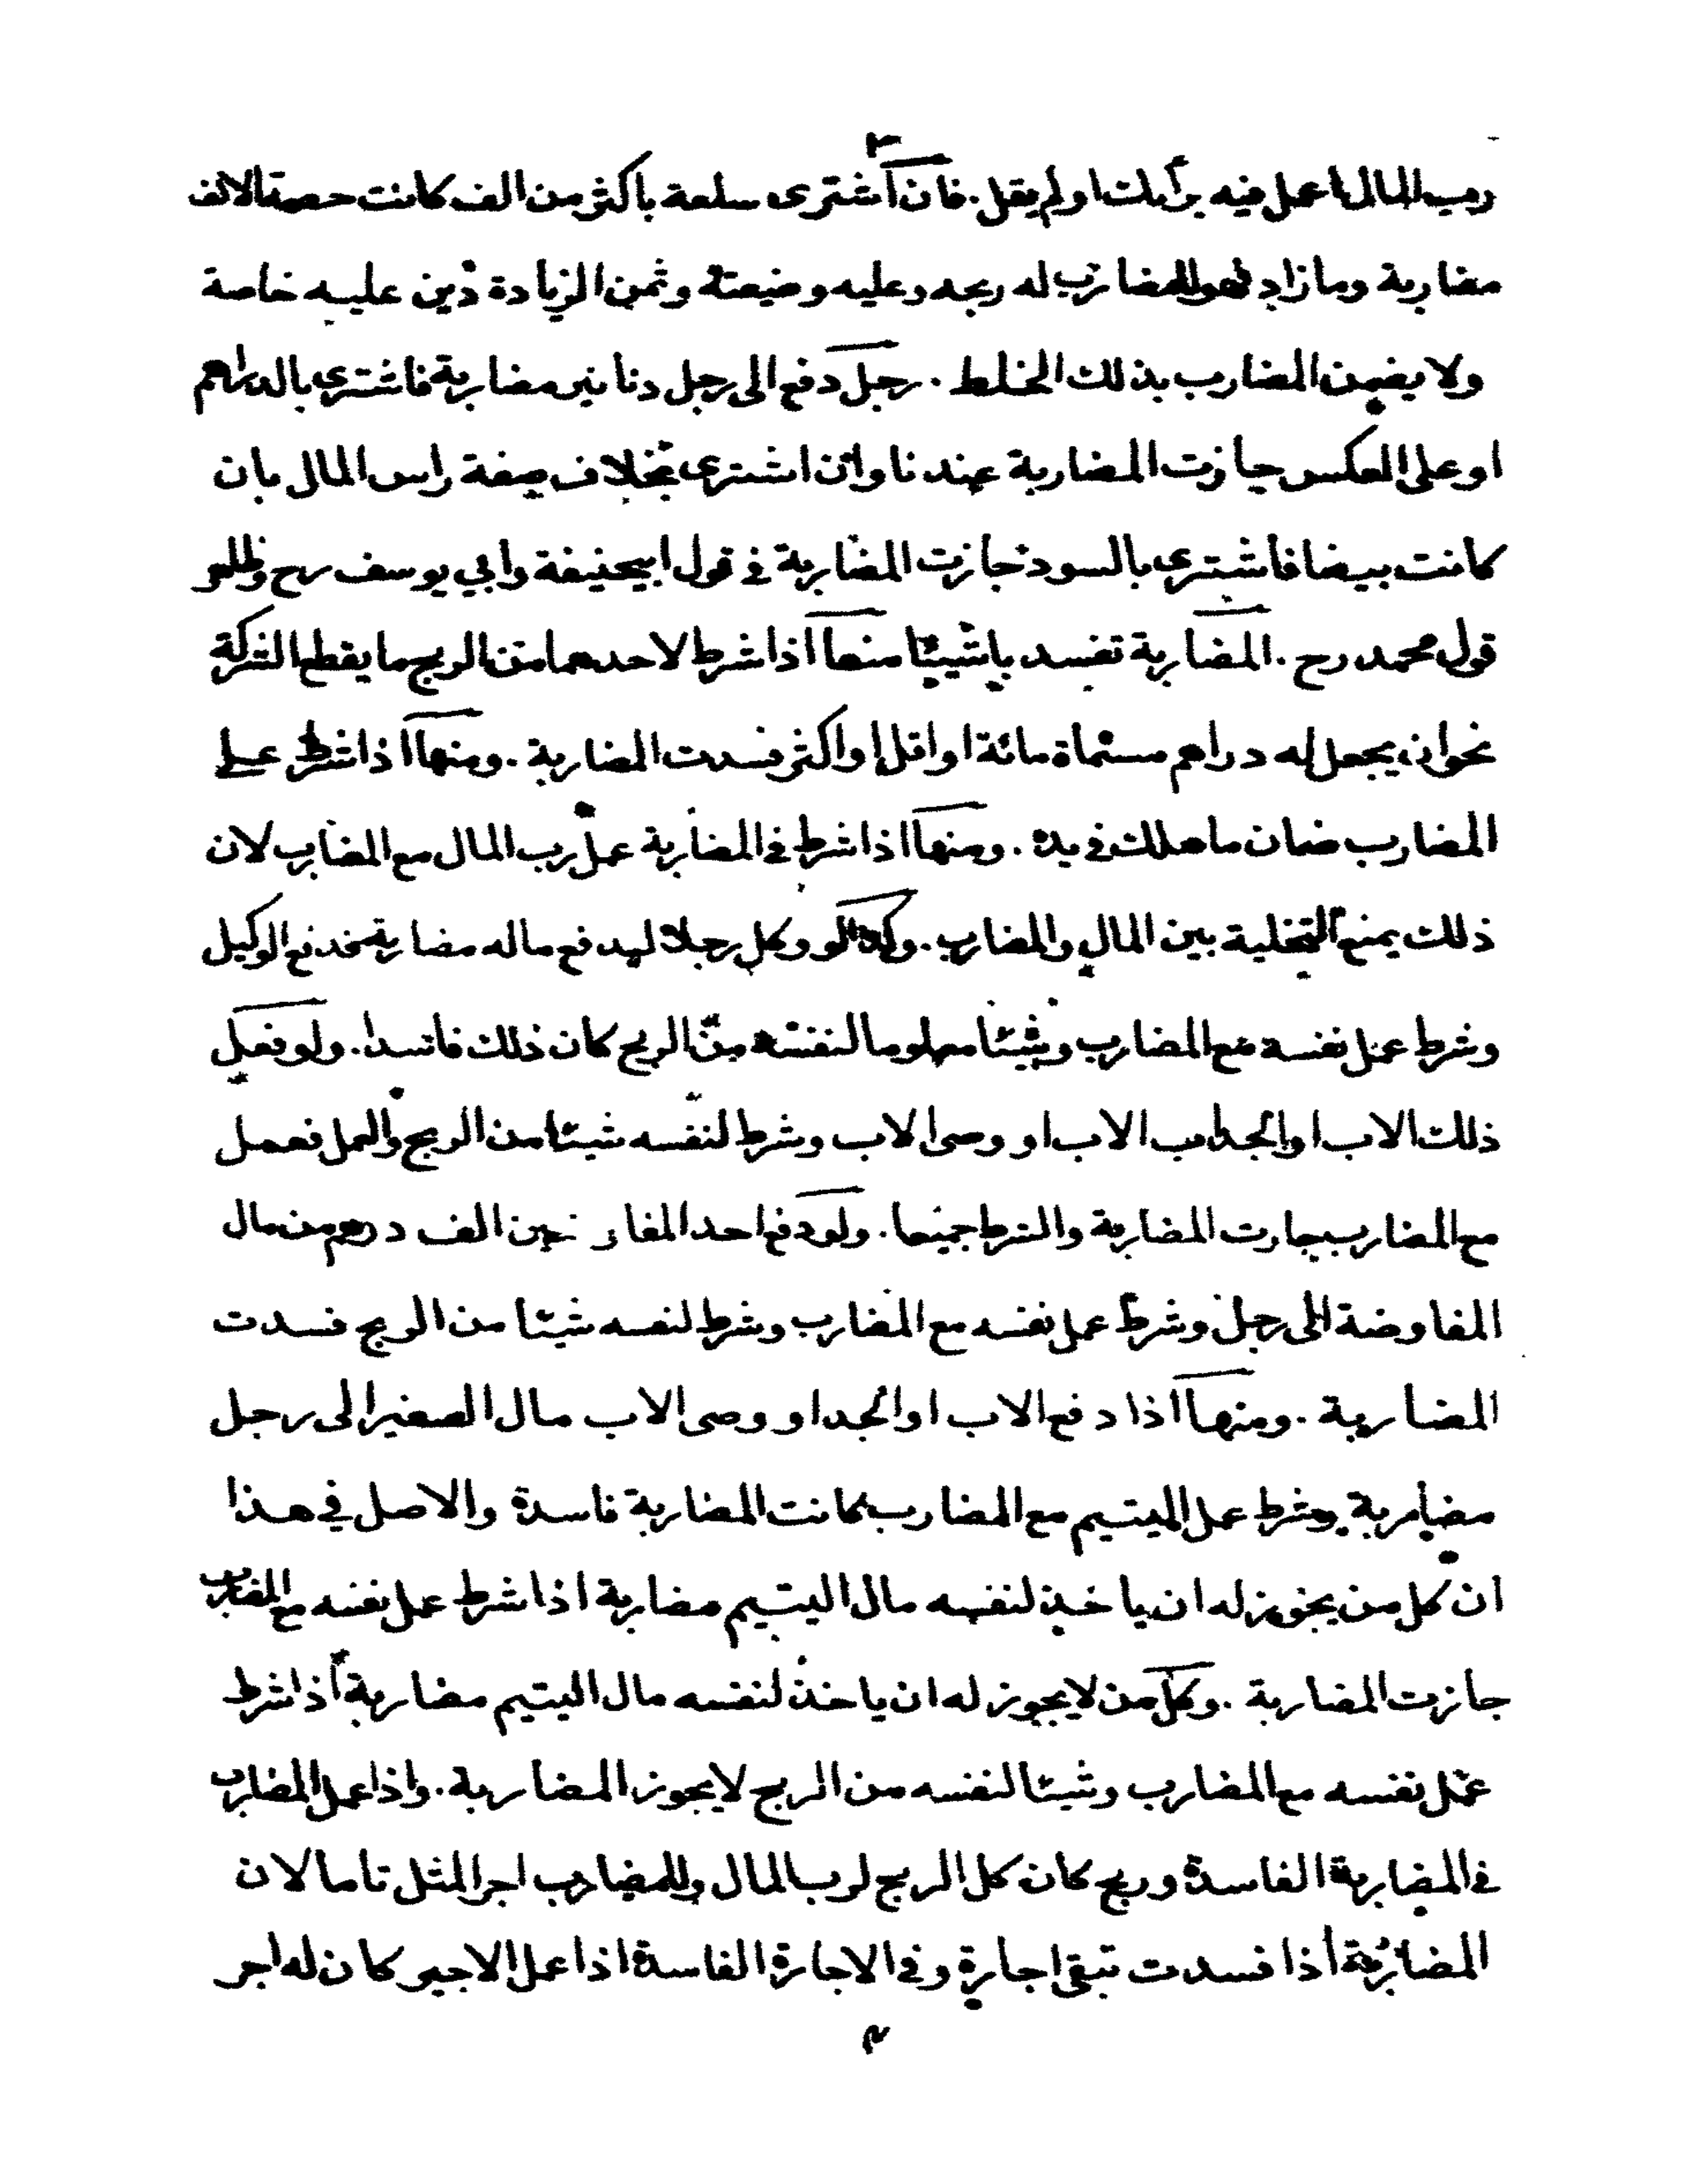 ٣
رب المال اعمل فيه برأيك او لم يقل. فان اشترى سلعة باكثر من الف كانت حصة الالف
مضاربة وما زاد فهو للمضارب له ربحه وعليه وضيعته وثمن الزيادة دين عليه خاصة
ولا يضمن المضارب بذلك الخلط. رجل دفع الى رجل دنانير مضاربة فاشترى بالدراهم
او على العكس جازت المضاربة عندنا وان اشترى بخلاف صفة راس المال بان
كانت بيضا فاشترى بالسود جازت المضاربة في قول ابيحنيفة وابي يوسف رح وظاهر
قول محمد رح. المضاربة تفسد باشيئا منها اذا شرط لاحدهما من الربح ما يقطع الشركة
نحو ان يجعل له دراهم مسماة مائة او اقل او اكثر فسدت المضاربة. ومنها اذا شرط على
المضارب ضمان ما هلك في يده. ومنها اذا شرط في المضاربة عمل رب المال مع المضارب لان
ذلك يمنع التخلية بين المال والمضارب. وكذا لو وكل رجلا ليدفع ماله مضاربة فدفع الوكيل
وشرط عمل نفسه مع المضارب وشيئا معلوما لنفسه من الربح كان ذلك فاسدا. ولو فعل
ذلك الاب او الجد اب الاب او وصى الاب وشرط لنفسه شيئا من الربح والعمل فعمل
مع المضارب جازت المضاربة والشرط جميعا. ولو دفع احد المفاوضين الف درهم من مال
المفاوضة الى رجل وشرط عمل نفسه مع المضارب وشرط لنفسه شيئا من الربح فسدت
المضاربة. ومنها اذا دفع الاب او الجد او وصى الاب مال الصغير الى رجل
مضاربة وشرط عمل اليتيم مع المضارب كانت المضاربة فاسدة والاصل في هذا
ان كل من يجوز له ان ياخذ لنفسه مال اليتيم مضاربة اذا شرط عمل نفسه مع المضارب
جازت المضاربة. وكل من لا يجوز له ان ياخذ لنفسه مال اليتيم مضاربة اذا شرط
عمل نفسه مع المضارب وشيئا لنفسه من الربح لا يجوز المضاربة. واذا عمل المضارب
في المضاربة الفاسدة وربح كان كل الربح لرب المال وللمضارب اجر المثل تاما لان
المضاربة اذا فسدت تبقى اجارة وفي الاجارة الفاسدة اذا عمل الاجير كان له اجر